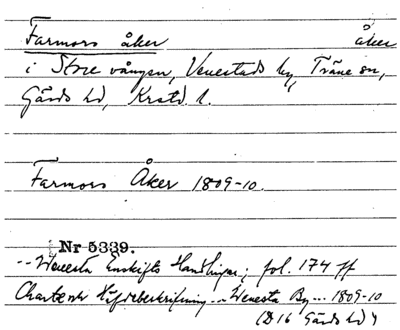 Farmors åker åker
i Store vången, Venestads by, Träne sn,
Gärds hd, Krstd. l.
Farmors Åker 1809-10.
Nr 5339.
-- Wenesta Enskifts Handlingar; fol. 174 ff
Charte och Häfdebeskrifning .. Wenesta By ... 1809-10
(D 16 Gärds hd)